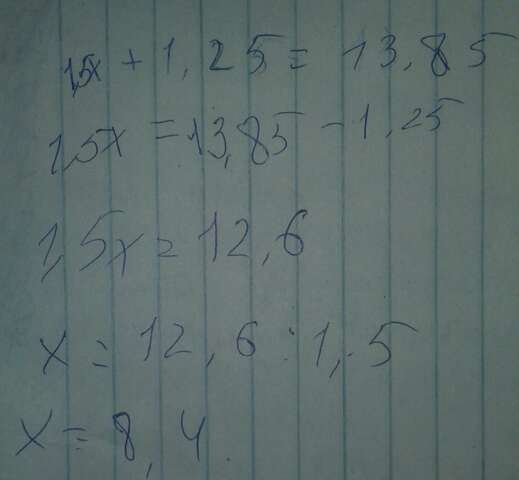 1,5x + 1,25 = 13,85
1,5x = 13,85 - 1,25
1,5x = 12,6
x = 12,6 : 1,5
x = 8,4